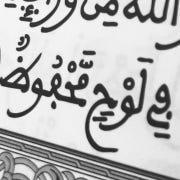 الله مِن وَرَائِ
فِي لَوْحٍ مَّحْفُوظٍ